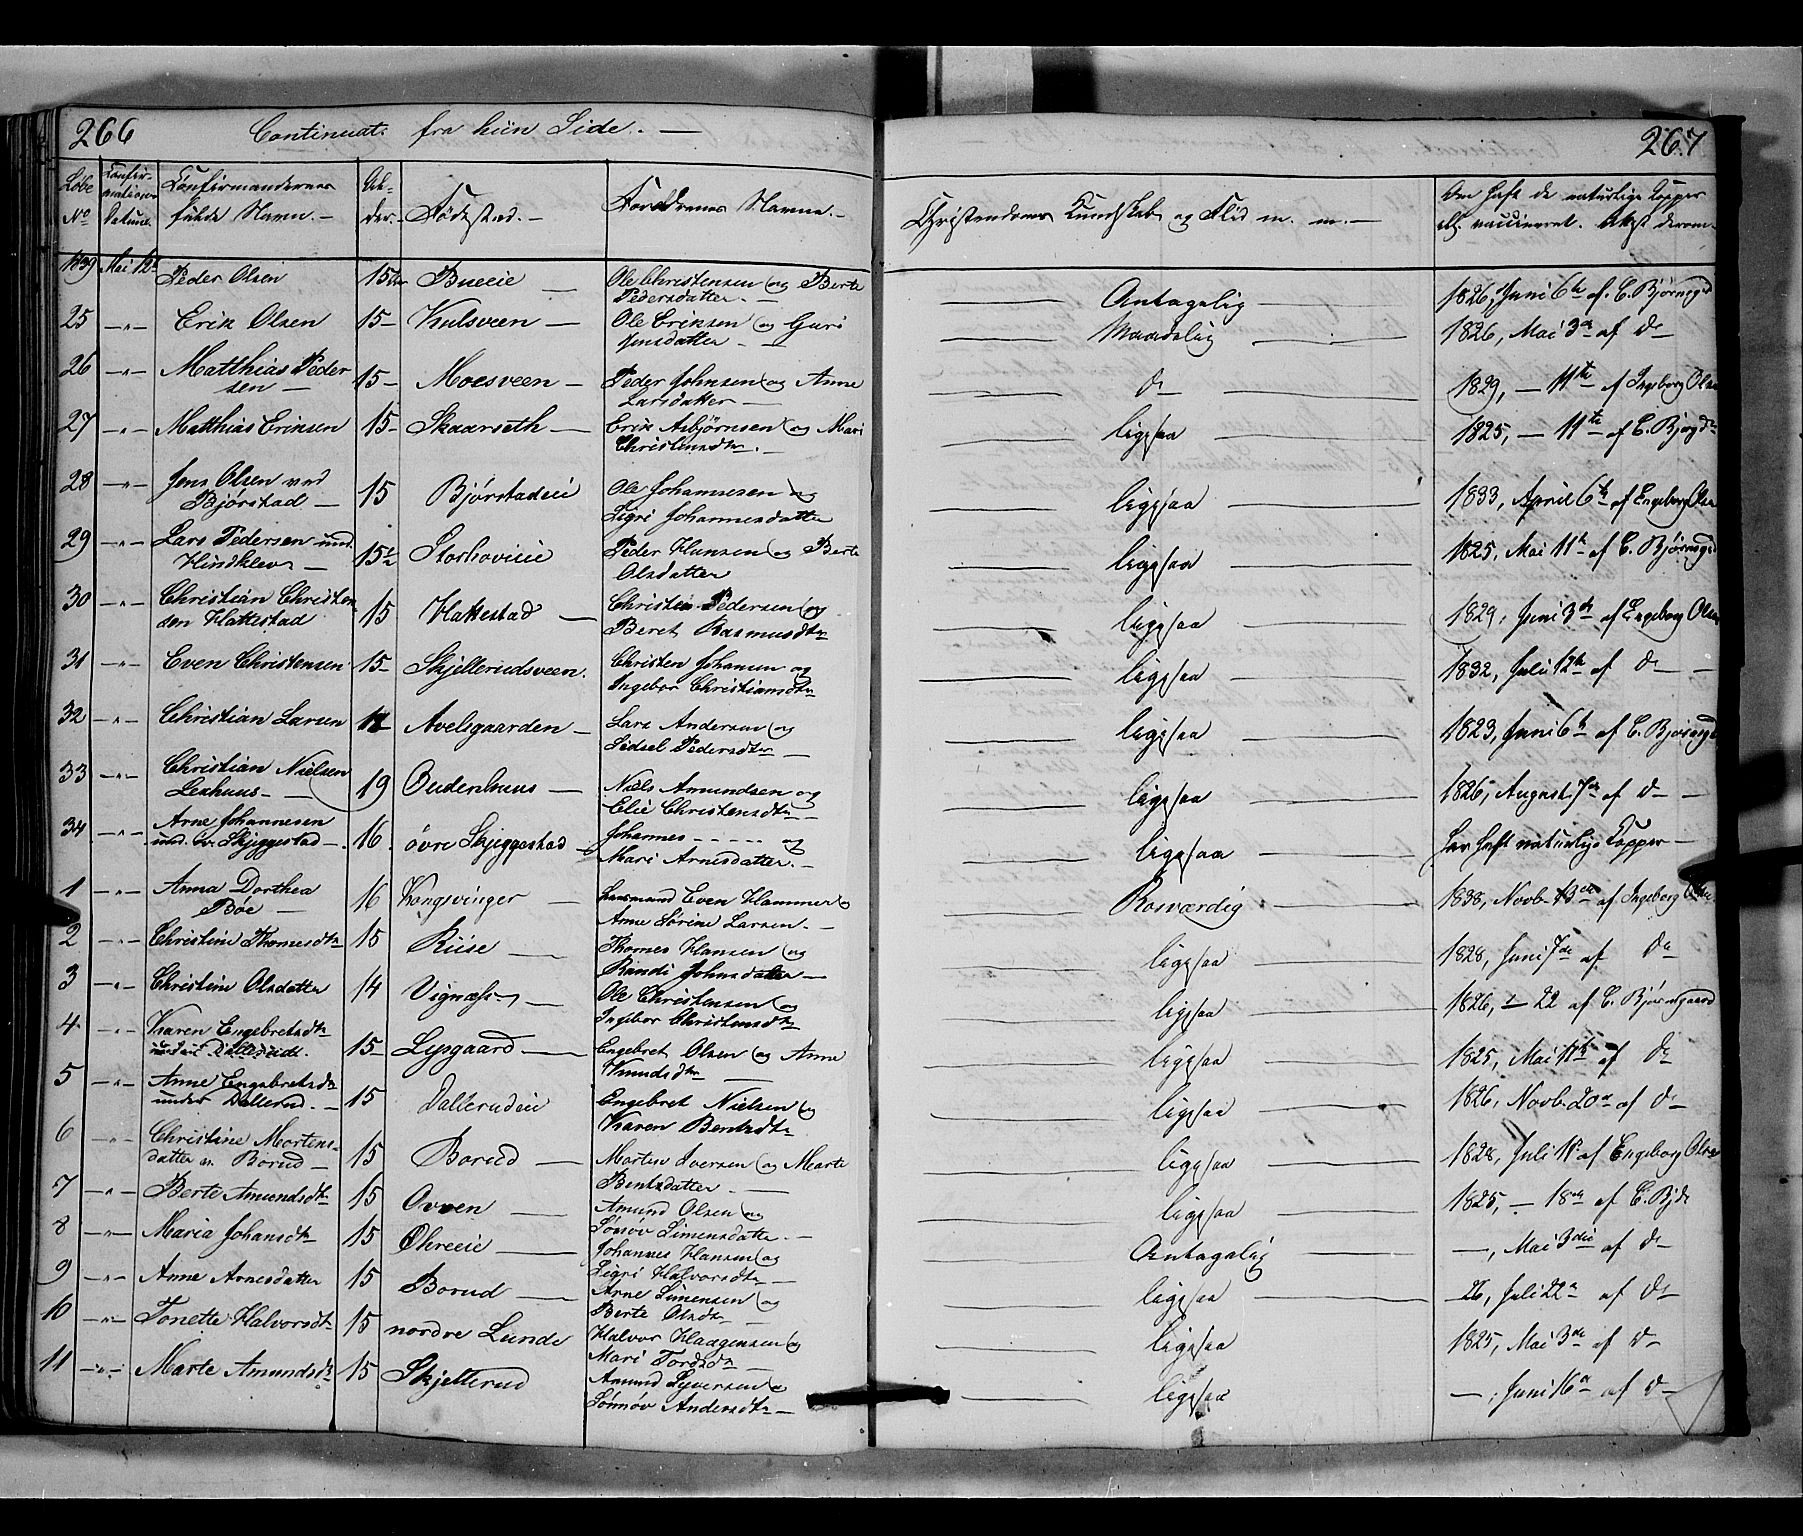 266 Continuat. fra hiin Side. —
267
Løbe No Confirmations Datum Confirmandernes fulde Navn. — Alder. Fødested. — Forældrenes Navne. — Christendoms Kundskab og Flid m. m. — Om haft de naturlige Kopper ell. vaccineret. Attest derom.
1839 Mai 12 Peder Olsen 15 Bueeie — Ole Christensen og Berte Pedersdatter. — Antagelig 1826, Juni 6te af C. Bjørnsgd
25 — " — Erik Olsen 15 — Kulsveen — Ole Eriksen og Guri Jensdatter — Maadelig 1826, Mai 3de af do
26 — " — Matthias Pedersen — 15 — Moesveen — Peder Johnsen og Anne Larsdatter — do 1829, — 11te af Ingeborg Olsen
27 — " — Matthias Eriksen 15 — Skaarseth — Erik Asbjørnsen og Mari Christensdtr. — ligesaa 1825, — 11te af C. Bjørgd
28 — " — Jens Olsen ved Bjørstad — 15 Bjørstadeie Ole Johannesen og Sigri Johannesdatter ligesaa 1833, April 6te af Engeborg Olsen
29 — " — Lars Pedersen und. Hindklev — 15½ Storhoveie Peder Hansen og Berte Olsdatter ligesaa 1825, Mai 11te af C. Bjørnsgd
30 — " — Christian Christensen Hattestad 15 Hattestad — Christen Pedersen og Beret Rasmusdtr ligesaa 1829, Juni 3de af Engeborg Olsen
31 — " — Even Christensen 15 — Skjellerudsveen. Christen Johansen og Ingebor Christiansdtr ligesaa 1832, Juli 12te af do —
32 — " — Christian Larsen Avelsgaarden — Lars Andersen og Sidsel Pedersdtr — ligesaa 1823, Juni 6te af C. Bjørnsgd
33 — " — Christian Nielsen — 19 — Niels Amundsen og Elie Christensdtr — ligesaa 1826, August 7de af do —
34 — " — Arne Johannesen und. øv. Skjeggestad — 16 øvre Skjeggestad — Johannes - - - - - og Mari Arnesdatter. — ligesaa har haft naturlige Kopper —
1 — " — Anna Dorthea Bøe — 16 Kongsvinger — Lensmand Even Hammer og Anne Sørine Larsen. — Rosværdig 1838, Novb. 13de af Ingeborg Olsen
2 — " — Christine Thomesdtr 15 Riise — Thomes Hansen og Randi Johnsdatter — ligesaa 1828, Juni 7de af do
3 — " — Christine Olsdatter 14 Vignæss — Ole Christensen og Ingebor Christensdtr ligesaa 1826, — 22 af C. Bjørnsgaard
4 — " — Karen Engebretsdtr 15 — Lysgaard — Engebret Olsen og Anne Knudsdtr — ligesaa 1825, Mai 11te af do
5 — " — Anne Engebretsdtr under Dallerud. — 15 Dallerudeie Engebret Nielsen og Karen Bentsdtr ligesaa 1826, Novb. 20de af do
6 — " — Christine Mortensdatter Borud — 15 Borud — Morten Iversen og Marte Bentsdatter — ligesaa 1828, Juli af Engeborg Olsen
7 — " — Berte Amundsdtr 15 Ovren — Amund Olsen og Sønnøv Simensdatter — ligesaa 1825, — 18de af C. Bjde
8 — " — Maria Johansdtr 15 Øhreeie — Johannes Hansen og Sigri Halvorsdtr — Antagelig —, Mai 3die af do
9 — " — Anne Arnesdatter 15 Borud — Arne Simensen og Berte Olsdtr — ligesaa — 26, Juli 22de af do
10 — " — Tonette Halvorsdtr 15 nordre Lunde Halvor Haagensen og Mari Tordsdtr — ligesaa 1825, Mai 3de af do
11 — " — Marte Amundsdtr 15 Skjellerud Amund Syversen og Sønnøv Andersdtr — ligesaa —, Juni 16de af do